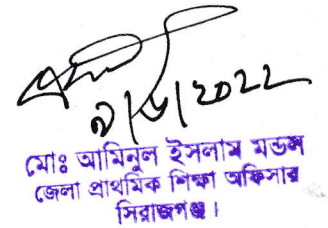 ৯/৬/2022
মোঃ আমিনুল ইসলাম মন্ডল
জেলা প্রাথমিক শিক্ষা অফিসার
সিরাজগঞ্জ।